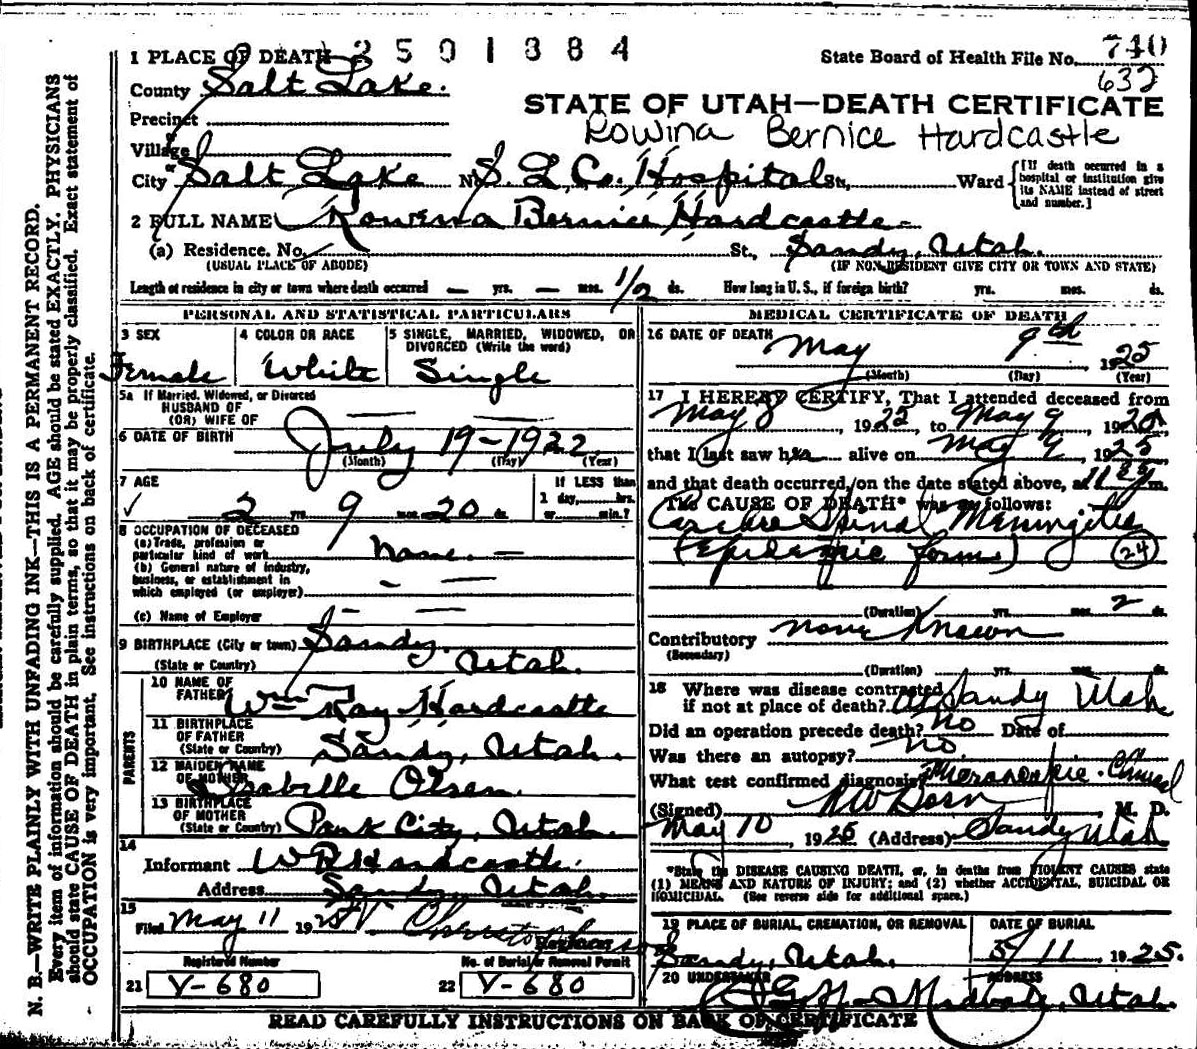 N. B.—WRITE PLAINLY WITH UNFADING INK—THIS IS A PERMANENT RECORD.
Every item of information should be carefully supplied. AGE should be stated EXACTLY. PHYSICIANS
should state CAUSE OF DEATH in plain terms, so that it may be properly classified. Exact statement of
OCCUPATION is very important. See instructions on back of certificate.
1 PLACE OF DEATH 2501884
State Board of Health File No. 740
632
County Salt Lake.
STATE OF UTAH—DEATH CERTIFICATE
Precinct
Rowina Bernice Hardcastle
Village
City Salt Lake No. S. L. Co. Hospital St., Ward
[If death occurred in a hospital or institution give its NAME instead of street and number.]
2 FULL NAME Rowena Bernice Hardcastle
(a) Residence. No. St., Sandy, Utah.
(USUAL PLACE OF ABODE) (IF NON RESIDENT GIVE CITY OR TOWN AND STATE)
Length of residence in city or town where death occurred — yrs. — mos. 1/2 ds. How long in U. S., if foreign birth? yrs. mos. ds.
PERSONAL AND STATISTICAL PARTICULARS
3 SEX Female
4 COLOR OR RACE White
5 SINGLE, MARRIED, WIDOWED, OR DIVORCED (Write the word) Single
5a If Married, Widowed, or Divorced
HUSBAND OF
(OR) WIFE OF
6 DATE OF BIRTH July 19-1922
(Month) (Day) (Year)
7 AGE 2 yrs. 9 mos. 20 ds.
If LESS than 1 day, hrs. or min.?
8 OCCUPATION OF DECEASED
(a) Trade, profession or particular kind of work None. —
(b) General nature of industry, business, or establishment in which employed (or employer)
(c) Name of Employer
9 BIRTHPLACE (City or town) Sandy.
(State or Country) Utah.
PARENTS
10 NAME OF FATHER Wm Ray Hardcastle
11 BIRTHPLACE OF FATHER (State or Country) Sandy, Utah.
12 MAIDEN NAME OF MOTHER Isabelle Olsen.
13 BIRTHPLACE OF MOTHER (State or Country) Park City, Utah.
14 Informant W R Hardcastle.
Address Sandy, Utah.
15 Filed May 11 192
Registrar
Registered Number
21 V-680
No. of Burial or Removal Permit
22 V-680
MEDICAL CERTIFICATE OF DEATH
16 DATE OF DEATH May 9th 1925
(Month) (Day) (Year)
17 I HEREBY CERTIFY, That I attended deceased from
May 8, 1925, to May 9, 1925
that I last saw her alive on May 9, 1925
and that death occurred, on the date stated above, at 11 m.
The CAUSE OF DEATH* was as follows:
Cerebro Spinal Meningitis
(Epidemic form) 24
(Duration) yrs. mos. 2 ds.
Contributory none known
(Secondary)
(Duration) yrs. mos. ds.
18 Where was disease contracted
if not at place of death? at Sandy Utah
Did an operation precede death? no Date of
Was there an autopsy? no
What test confirmed diagnosis? Microscopic. Clinical
(Signed) M. D.
May 10, 1925 (Address) Sandy Utah
*State the DISEASE CAUSING DEATH, or, in deaths from VIOLENT CAUSES state
(1) MEANS AND NATURE OF INJURY; and (2) whether ACCIDENTAL, SUICIDAL OR
HOMICIDAL. (See reverse side for additional space.)
19 PLACE OF BURIAL, CREMATION, OR REMOVAL Sandy, Utah.
DATE OF BURIAL 5/11 1925.
20 UNDERTAKER Goff ADDRESS Midvale, Utah.
READ CAREFULLY INSTRUCTIONS ON BACK OF CERTIFICATE